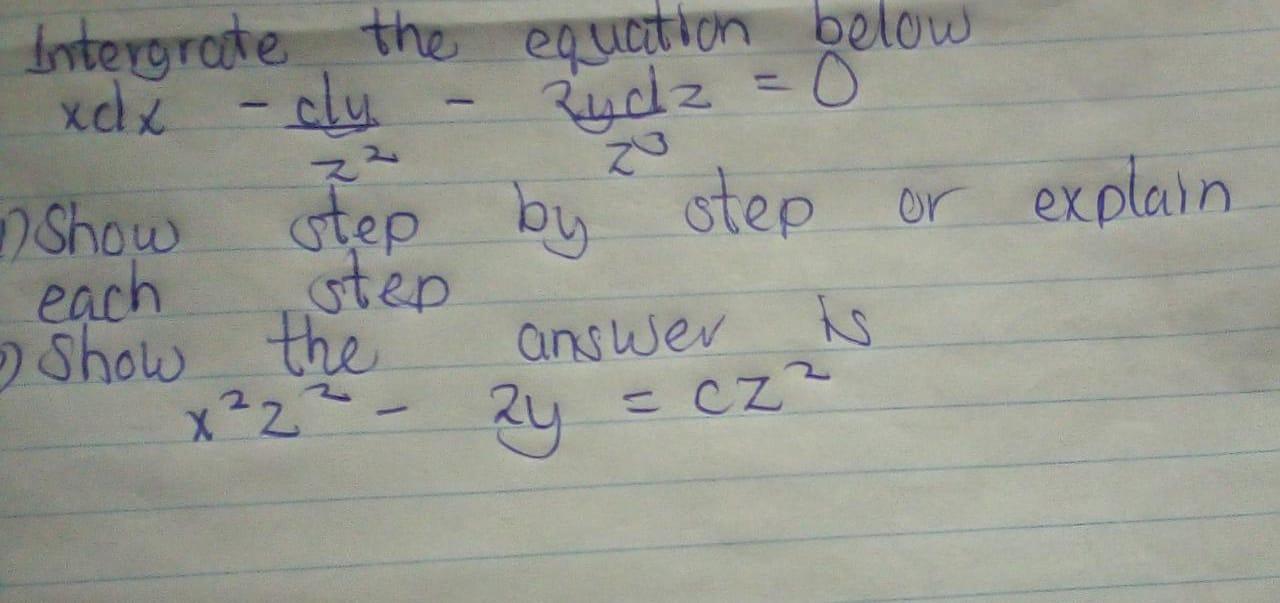 Intergrate the equation below
xdx - dy/z² - 2ydz/z³ = 0
1) Show step by step or explain
each step
2) Show the answer is
x²z² - 2y = cz²